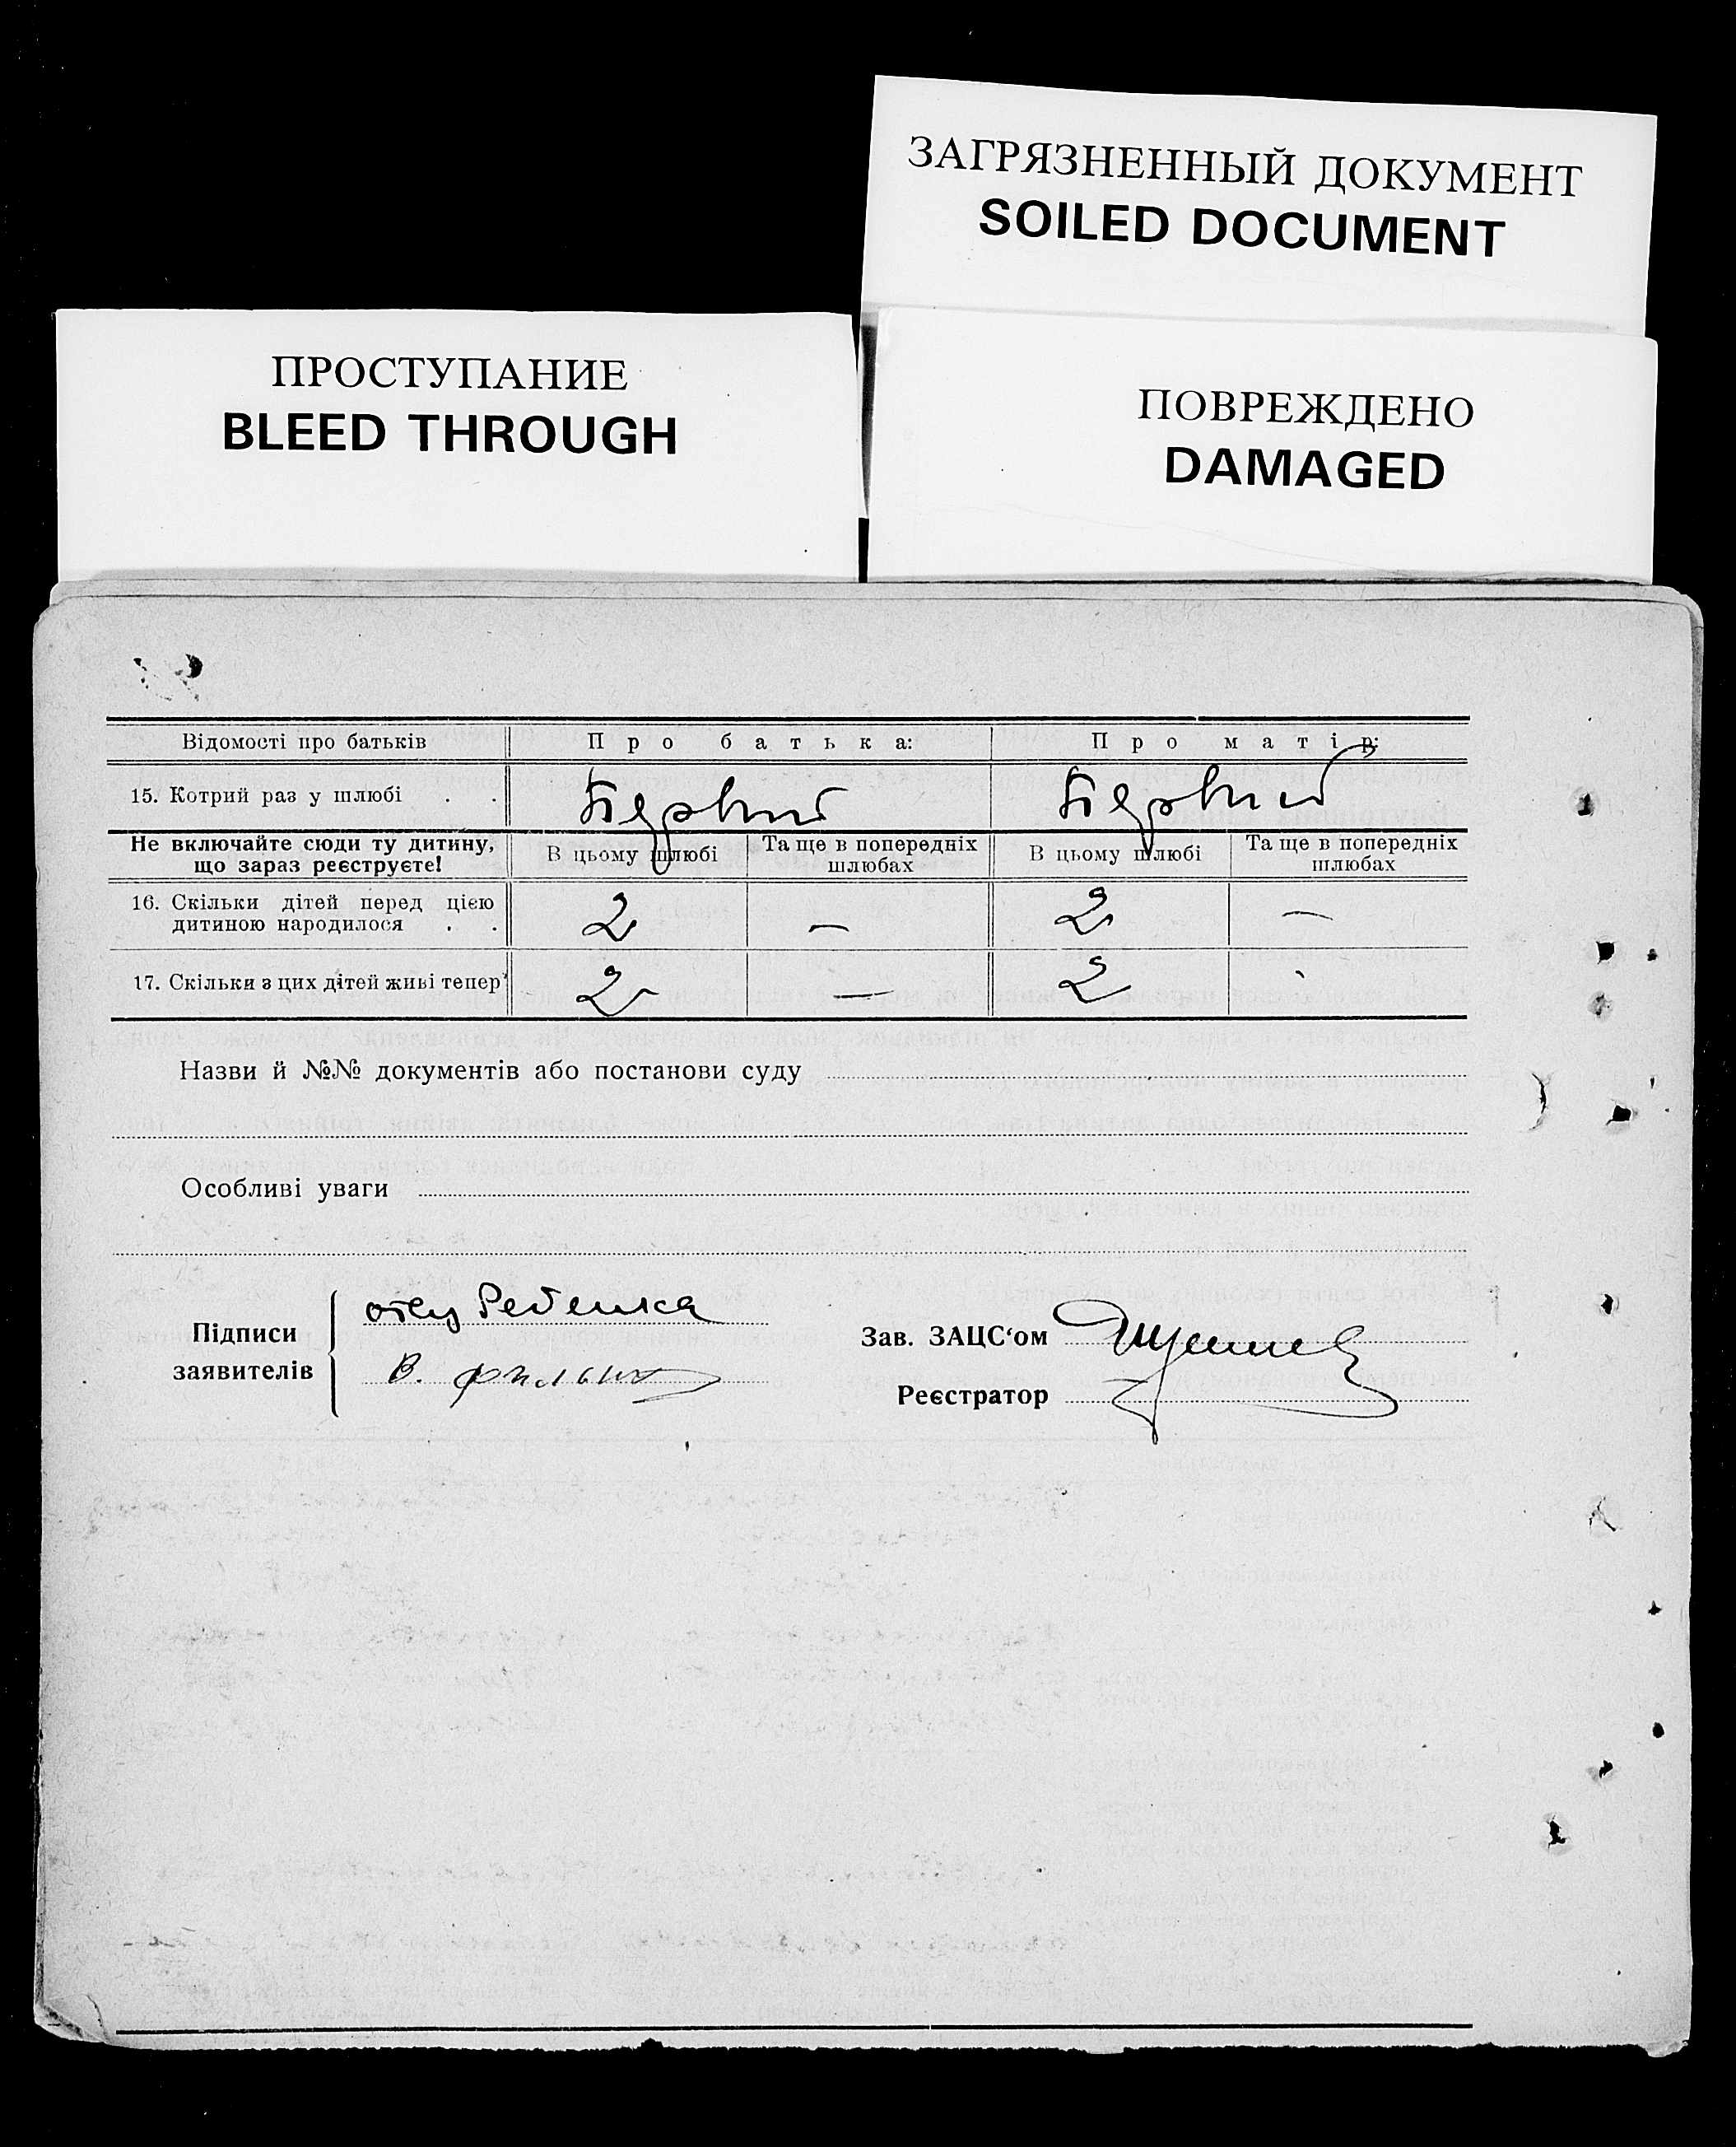 ЗАГРЯЗНЕННЫЙ ДОКУМЕНТ
SOILED DOCUMENT
ПРОСТУПАНИЕ
BLEED THROUGH
ПОВРЕЖДЕНО
DAMAGED
Відомості про батьків Про батька: Про матір:
15. Котрий раз у шлюбі . . Первий Первий
Не включайте сюди ту дитину, що зараз реєструєте! В цьому шлюбі Та ще в попередніх шлюбах В цьому шлюбі Та ще в попередніх шлюбах
16. Скільки дітей перед цією
дитиною народилося . . 2 — 2 —
17. Скільки з цих дітей живі тепер 2 — 2
Назви й №№ документів або постанови суду
Особливі уваги
Підписи
заявителів
отец Ребенка
В.
Зав. ЗАЦС'ом
Реєстратор